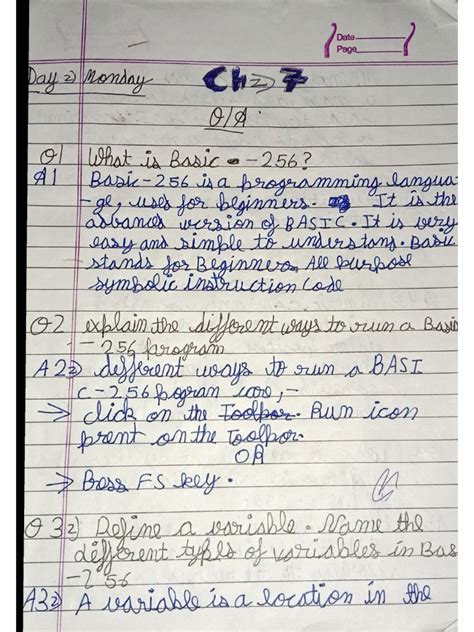 Date
Page
Day 2) Monday Ch 7
Q/A
Q1 What is Basic - -256?
A1 Basic-256 is a programming langua
-ge, uses for beginners. It is the
asbands version of BASIC. It is very
easy and simple to understans. Basic
stands for Beginners All purpose
symbolic instruction Code
Q2 explain the different ways to run a Basic
- 256 program
A2 different ways to run a BASI
C-256 program are,-
→ click on the Toolpor. Run icon
prent on the Toolpor.
OR
→ Press F5 key.
Q 3 Define a variable. Name the
different types of variables in Bas
-256
A3 A variable is a location in the